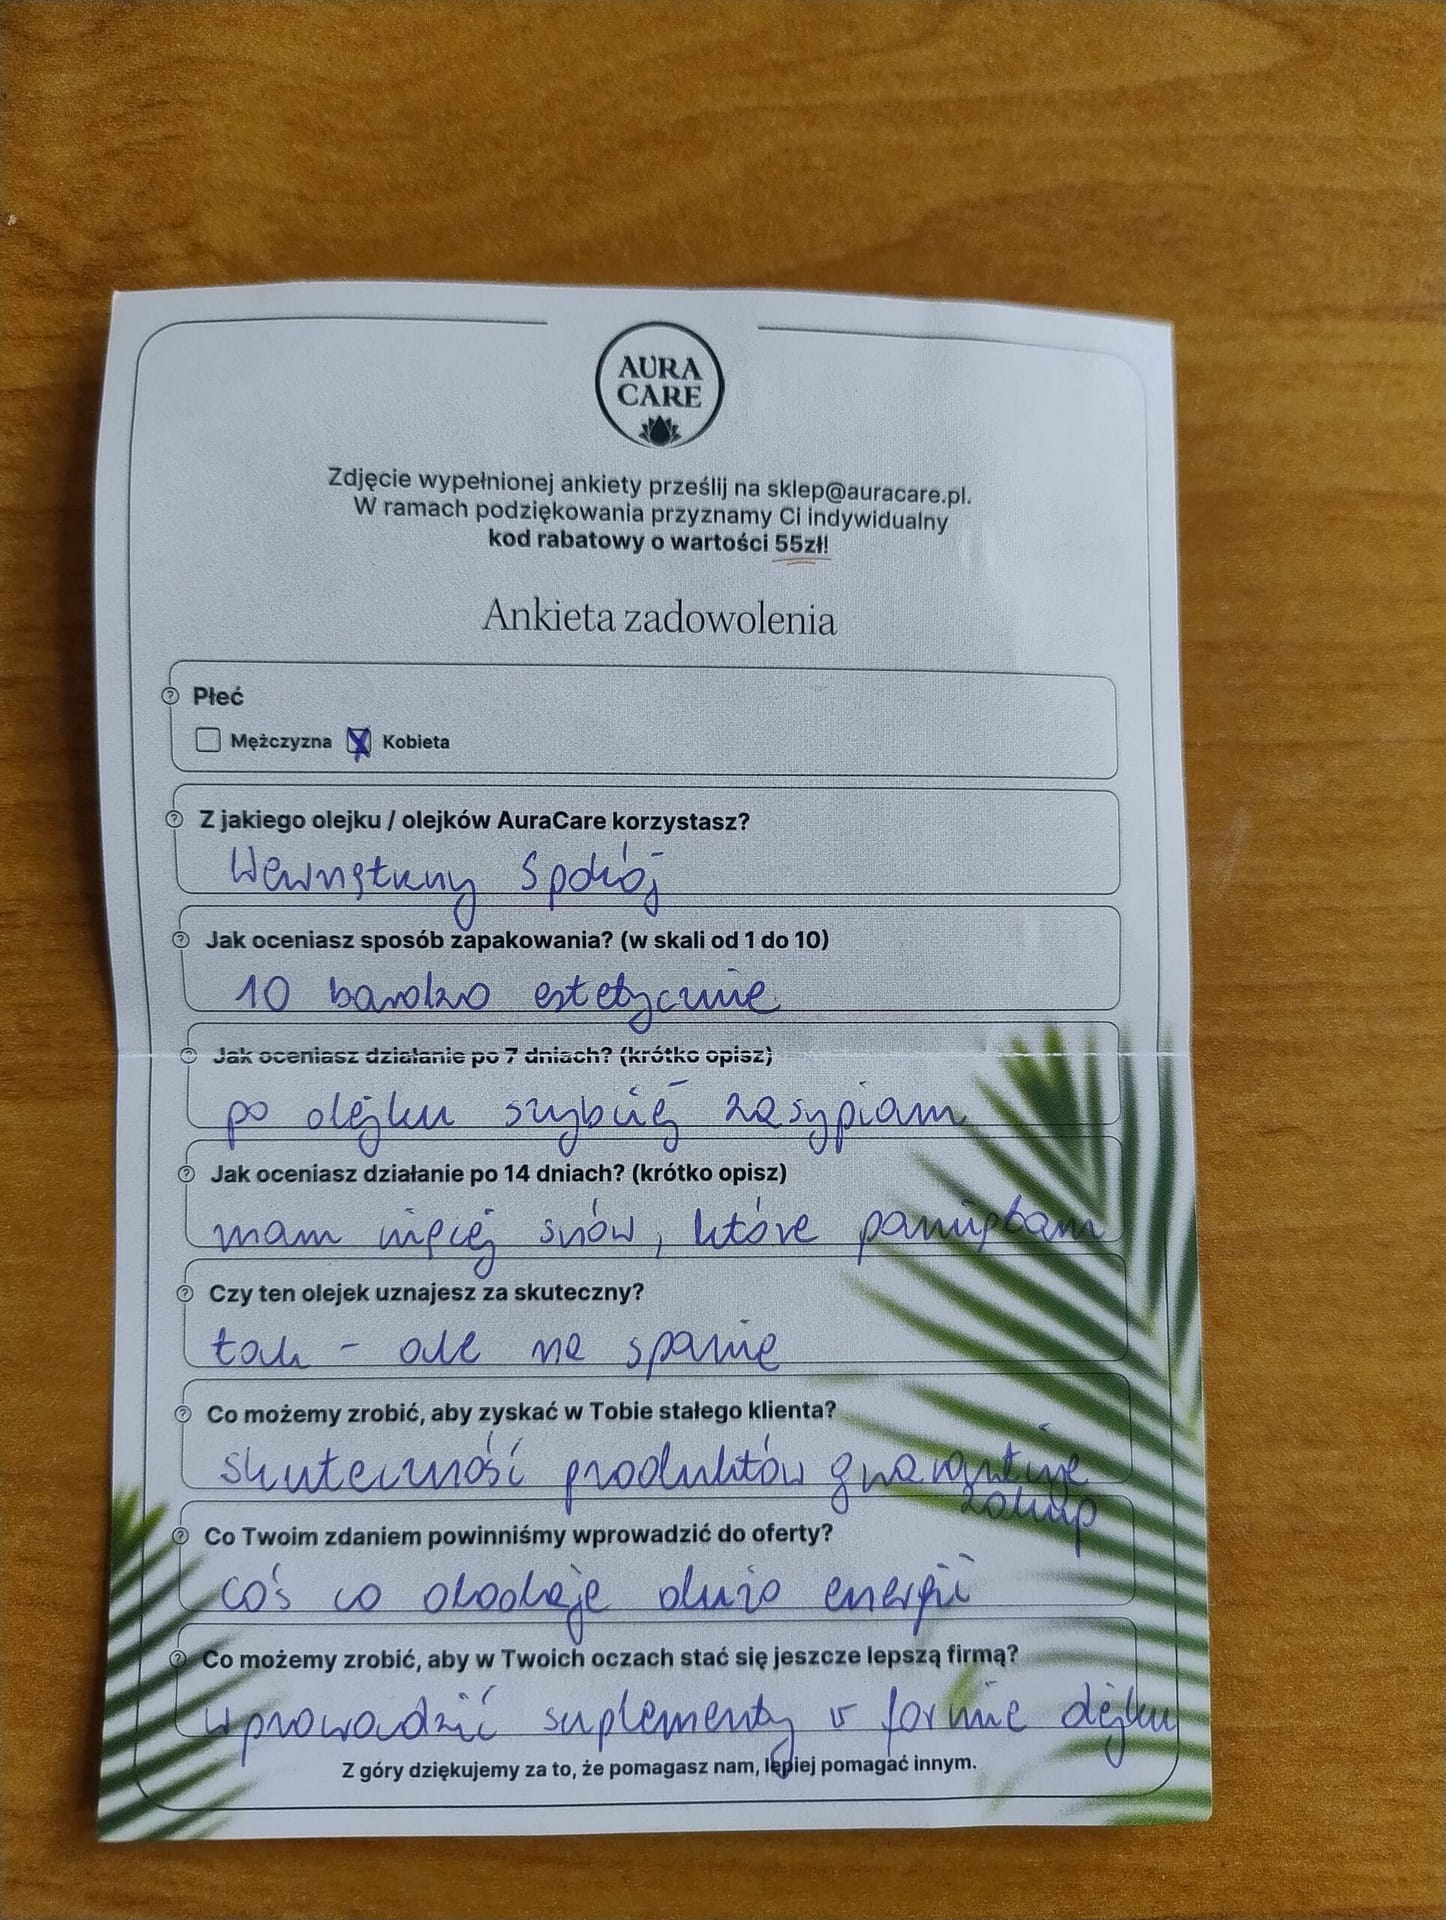 AURA
CARE
Zdjęcie wypełnionej ankiety prześlij na sklep@auracare.pl.
W ramach podziękowania przyznamy Ci indywidualny
kod rabatowy o wartości 55zł!
Ankieta zadowolenia
Płeć
Mężczyzna Kobieta
Z jakiego olejku / olejków AuraCare korzystasz?
Wewnętrzny Spokój
Jak oceniasz sposób zapakowania? (w skali od 1 do 10)
10 bardzo estetycznie
Jak oceniasz działanie po 7 dniach? (krótko opisz)
po olejku szybciej zasypiam
Jak oceniasz działanie po 14 dniach? (krótko opisz)
mam więcej snów, które pamiętam
Czy ten olejek uznajesz za skuteczny?
tak - ale na spanie
Co możemy zrobić, aby zyskać w Tobie stałego klienta?
skuteczność produktów gwarantuje
zakup
Co Twoim zdaniem powinniśmy wprowadzić do oferty?
coś co dodaje dużo energii
Co możemy zrobić, aby w Twoich oczach stać się jeszcze lepszą firmą?
wprowadzić suplementy w formie olejku
Z góry dziękujemy za to, że pomagasz nam, lepiej pomagać innym.